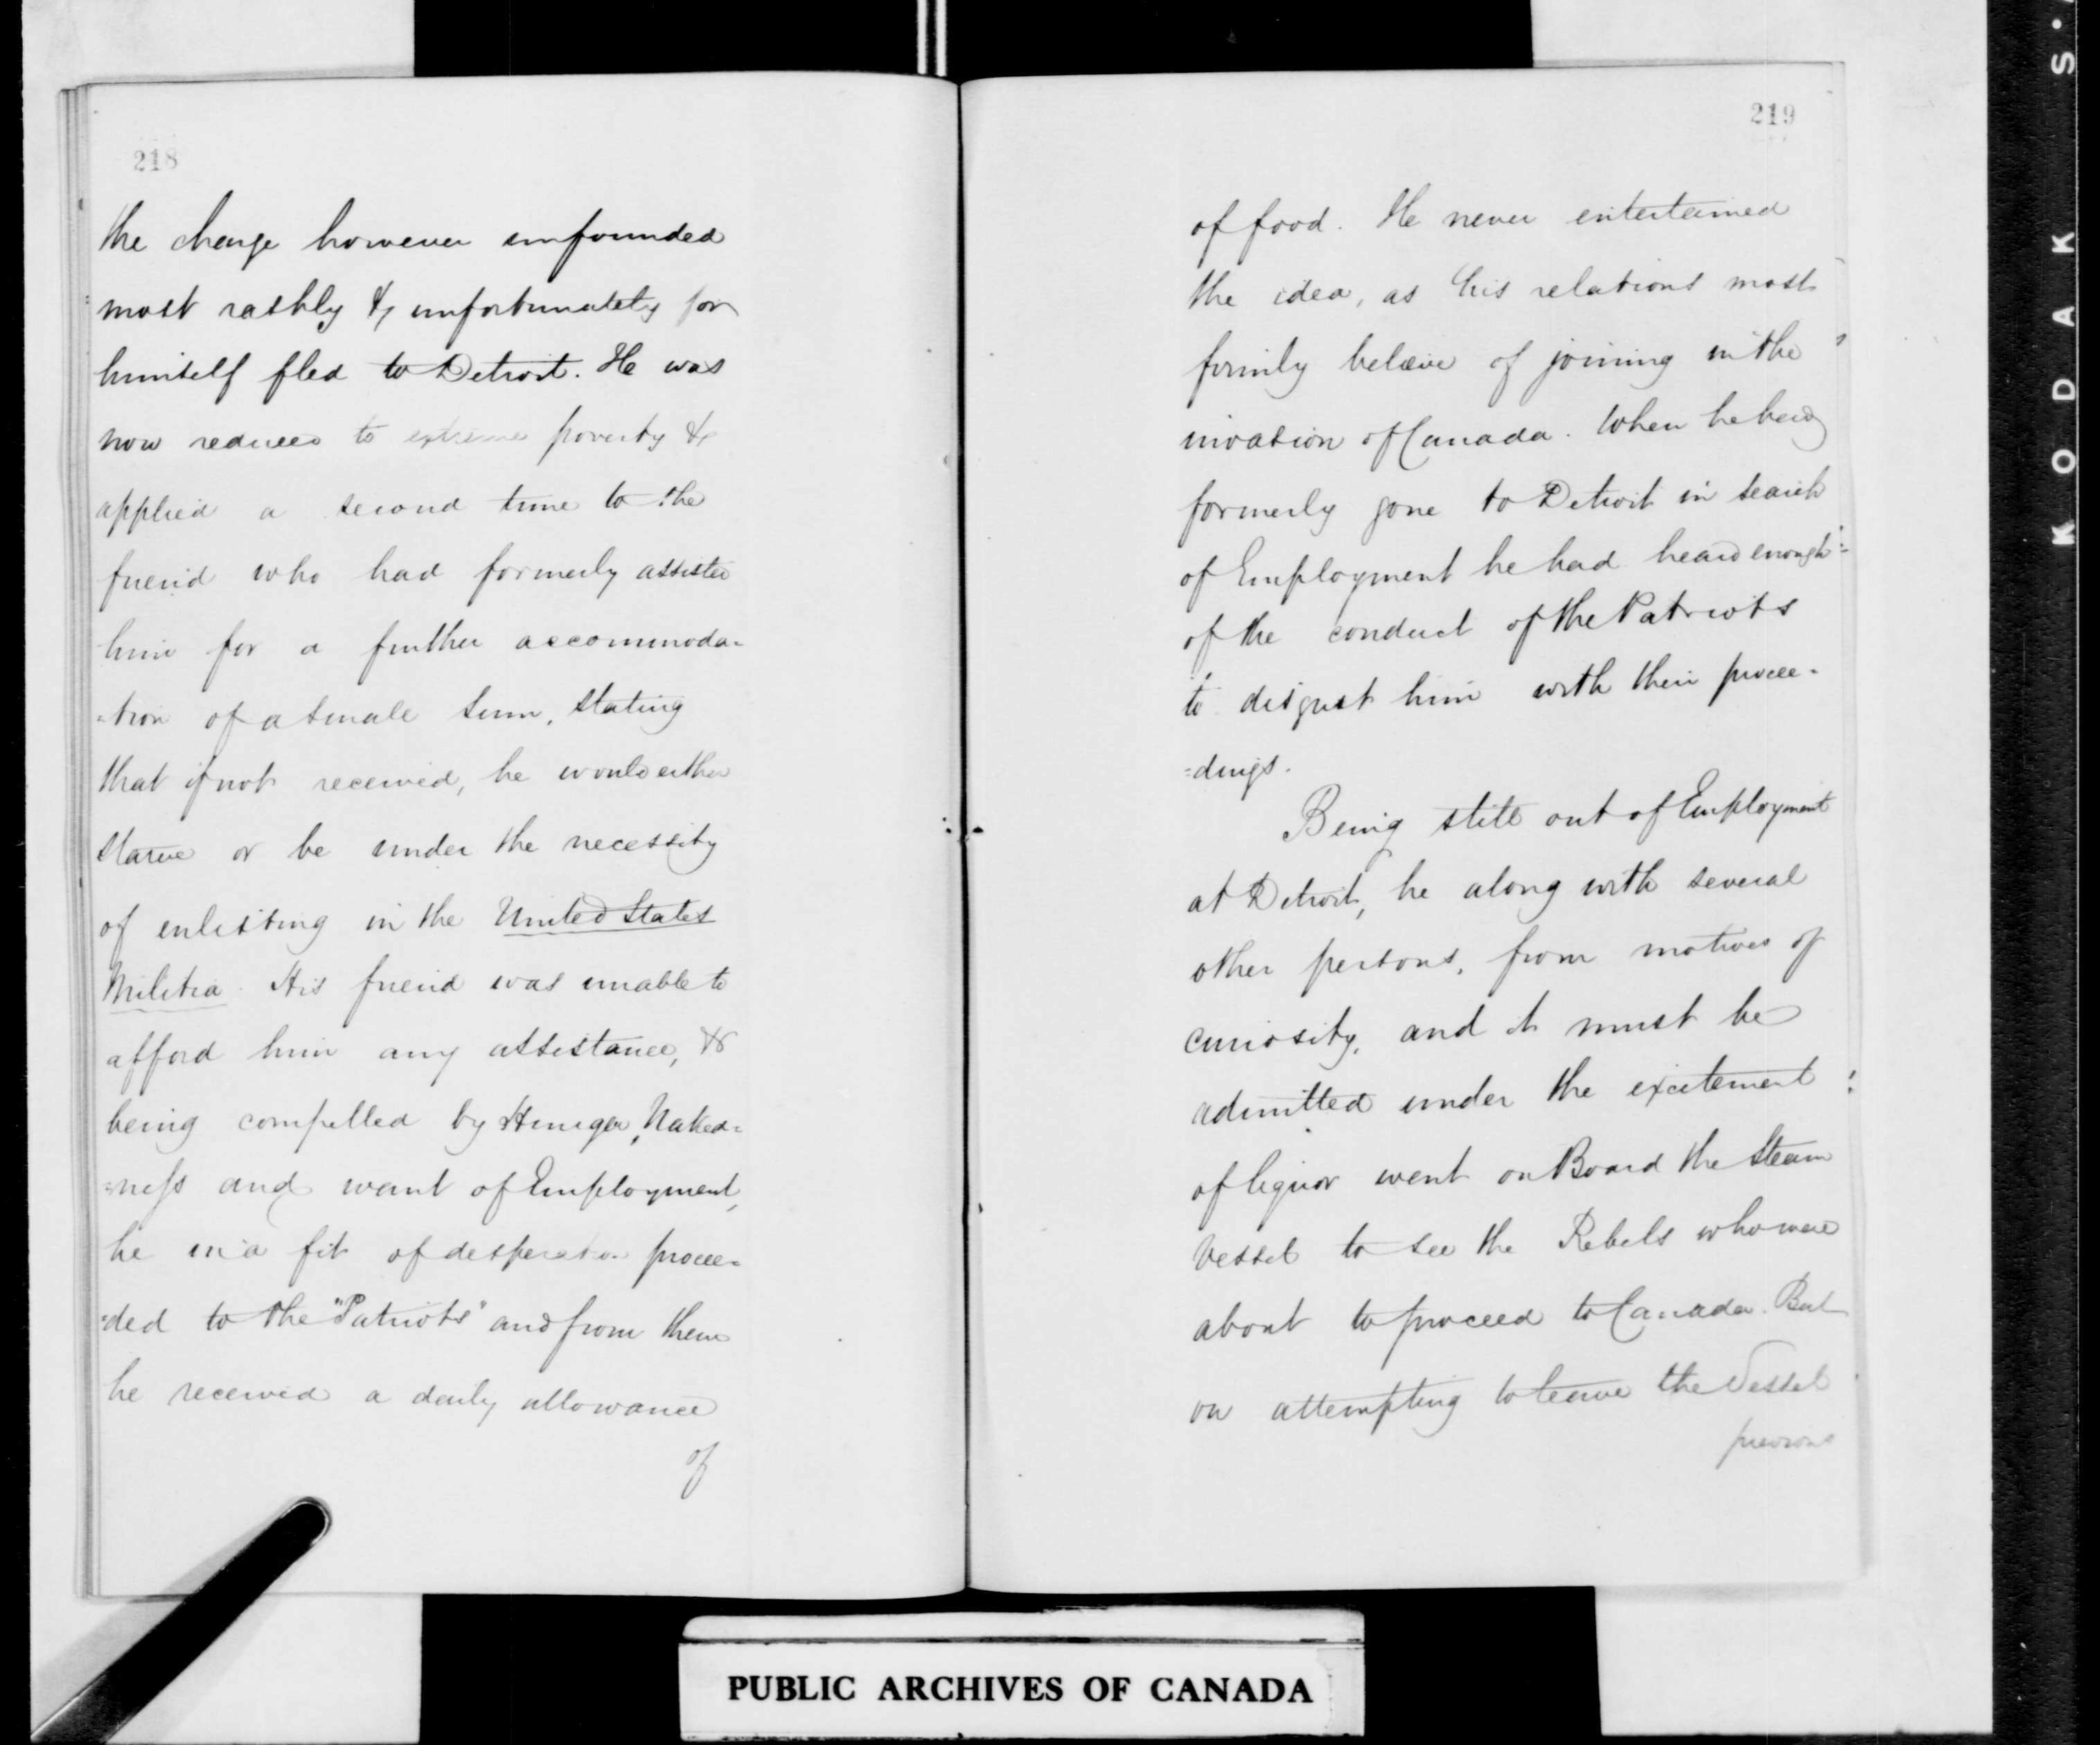 218
the charge however unfounded
most rashly & unfortunately for
himself fled to Detroit. He was
now reduced to extreme poverty &
applied a second time to the
friend who had formerly assisted
him for a further accommoda-
-tion of a small sum, stating
that if not received, he would either
starve or be under the necessity
of enlisting in the United States
Militia. His friend was unable to
afford him any assistance, &
being compelled by Hunger, Naked=
=ness and want of Employment,
he in a fit of desperation procee=
=ded to the "Patriots" and from them
he received a daily allowance
of
219
of food. He never entertained
the idea, as his relations most
firmly believe of joining in the
invasion of Canada. When he had
formerly gone to Detroit in search
of Employment he had heard enough
of the conduct of the Patriots
to disgust him with their procee=
=dings.
Being still out of Employment
at Detroit, he along with several
other persons, from motives of
curiosity, and it must be
admitted under the excitement
of liquor went on Board the Steam
Vessel to see the Rebels who were
about to proceed to Canada. But
on attempting to leave the Vessel
previous
PUBLIC ARCHIVES OF CANADA
KODAK S.